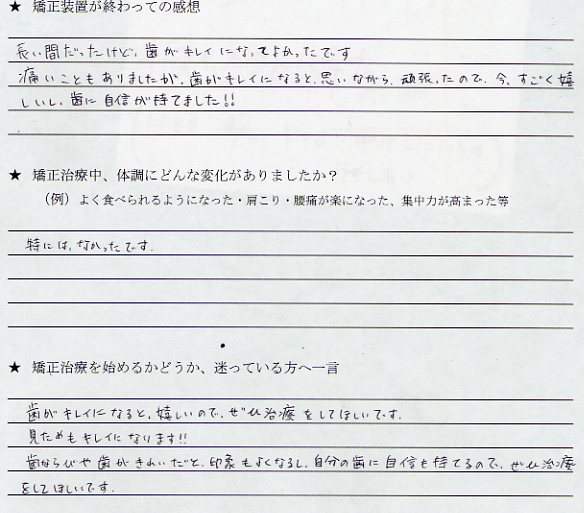 ★ 矯正装置が終わっての感想
長い間だったけど、歯がキレイになってよかったです
痛いこともありましたが、歯がキレイになると、思いながら、頑張ったので、今、すごく嬉
しいし、歯に自信が持てました!!
★ 矯正治療中、体調にどんな変化がありましたか？
（例）よく食べられるようになった・肩こり・腰痛が楽になった、集中力が高まった等
特には、なかったです.
★ 矯正治療を始めるかどうか、迷っている方へ一言
歯がキレイになると、嬉しいので、ぜひ治療をしてほしいです.
見ためもキレイになります!!
歯ならびや歯がきれいだと、印象もよくなるし、自分の歯に自信も持てるので、ぜひ治療
をしてほしいです.